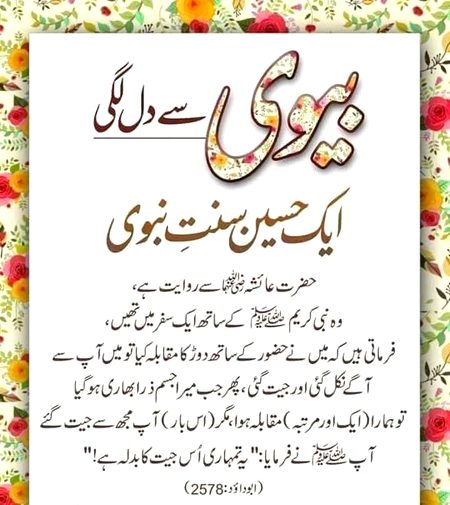 بیوی سے دل لگی
ایک حسین سنتِ نبوی
حضرت عائشہ رضی اللہ عنہا سے روایت ہے،
وہ نبی کریم ﷺ کے ساتھ ایک سفر میں تھیں،
فرماتی ہیں کہ میں نے حضور کے ساتھ دوڑ کا مقابلہ کیا تو میں آپ سے
آگے نکل گئی اور جیت گئی، پھر جب میرا جسم ذرا بھاری ہو گیا
تو ہمارا (ایک اور مرتبہ) مقابلہ ہوا، مگر (اس بار) آپ مجھ سے جیت گئے
آپ ﷺ نے فرمایا: "یہ تمہاری اُس جیت کا بدلہ ہے!"
(ابوداؤد: 2578)